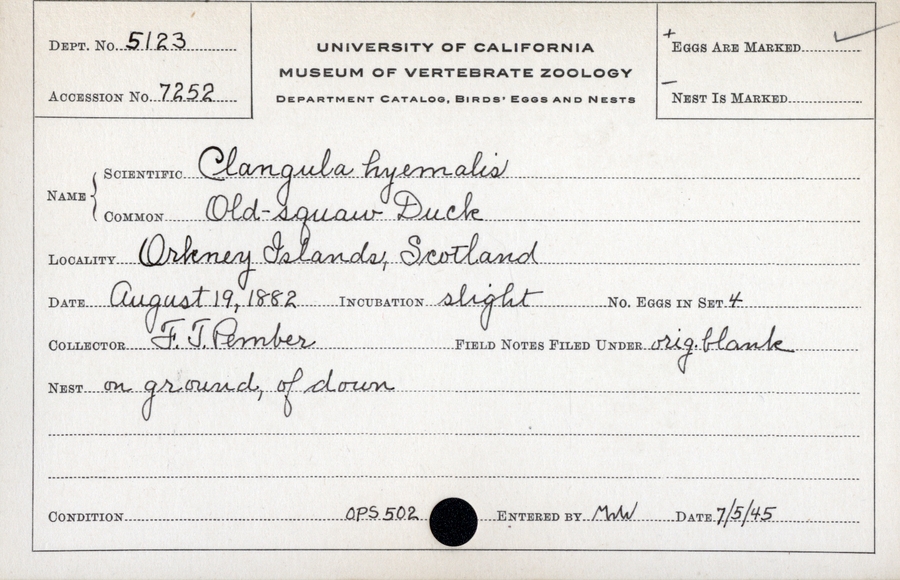 DEPT. NO. 5123
ACCESSION NO. 7252
UNIVERSITY OF CALIFORNIA
MUSEUM OF VERTEBRATE ZOOLOGY
DEPARTMENT CATALOG, BIRDS' EGGS AND NESTS
+ EGGS ARE MARKED ✓
– NEST IS MARKED
NAME
SCIENTIFIC Clangula hyemalis
COMMON Old-squaw Duck
LOCALITY Orkney Islands, Scotland
DATE August 19, 1882 INCUBATION slight NO. EGGS IN SET 4
COLLECTOR F. T. Pember FIELD NOTES FILED UNDER orig. blank
NEST on ground, of down
CONDITION OPS 502 ENTERED BY DATE 7/5/45